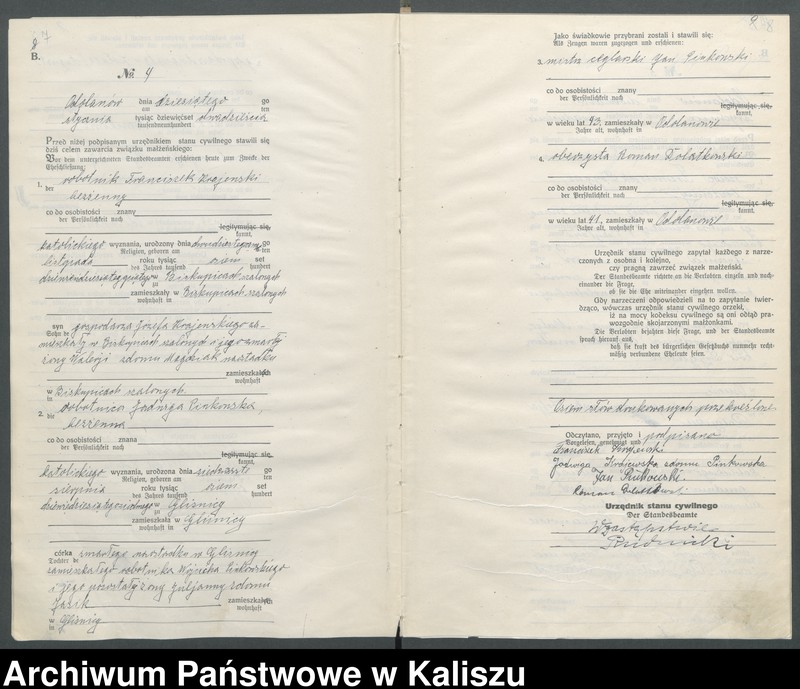 8 7
B.
№ 4
Odolanów dnia dziesiątego go
am ten
stycznia tysiąc dziewięćset dwudziestego
tausendneunhundert
Przed niżej podpisanym urzędnikiem stanu cywilnego stawili się
dziś celem zawarcia związku małżeńskiego:
Vor dem unterzeichneten Standesbeamten erschienen heute zum Zwecke der
Eheschließung:
1. robotnik Franciszek Krajewski
der
bezżenny
co do osobistości znany
der Persönlichkeit nach
legitymując się,
kannt,
katolickiego wyznania, urodzony dnia go
Religion, geboren am ten
listopada roku tysiąc osiem set
des Jahres tausend hundert
w Biskupicach szalonych
zu
zamieszkały w Biskupicach szalonych
wohnhaft in
syn gospodarza Józefa Krajewskiego za-
Sohn de
mieszkały w Biskupicach szalonych i jego zmarły
żony Walerji z domu nastadku
zamieszkałych
wohnhaft
w Biskupicach szalonych.
in
2. robotnica Jadwiga Pinkowska,
die
bezżenna
co do osobistości znana
der Persönlichkeit nach
legitymując się,
kannt,
katolickiego wyznania, urodzona dnia siedzmnste go
Religion, geboren am ten
sierpnia roku tysiąc osiem set
des Jahres tausend hundert
w Gliśnicy
zu
zamieszkała w Gliśnicy
wohnhaft in
córka zmarłego w Gliśnicy
Tochter de
zamieszkałego robotnika Wojciecha Pinkowskiego
i jego pozostałej żony Juljanny z domu
Jasik zamieszkałych
wohnhaft
w Gliśnicy
in
9 8
Jako świadkowie przybrani zostali i stawili się:
Als Zeugen waren zugezogen und erschienen:
3. mistrz ceglarski Jan Pinkowski
co do osobistości znany
der Persönlichkeit nach
legitymując się,
kannt,
w wieku lat 43, zamieszkały w Odolanowie
Jahre alt, wohnhaft in
4. oberzysta Roman Dolatkowski
co do osobistości znany
der Persönlichkeit nach
legitymując się,
kannt,
w wieku lat 41, zamieszkały w Odolanowie
Jahre alt, wohnhaft in
Urzędnik stanu cywilnego zapytał każdego z narze-
czonych z osobna i kolejno,
czy pragną zawrzeć związek małżeński.
Der Standesbeamte richtete an die Verlobten einzeln und nach-
einander die Frage,
ob sie die Ehe miteinander eingehen wollen.
Gdy narzeczeni odpowiedzieli na to zapytanie twier-
dząco, wówczas urzędnik stanu cywilnego orzekł,
iż na mocy kodeksu cywilnego są oni odtąd pra-
wozgodnie skojarzonymi małżonkami.
Die Verlobten bejahten diese Frage, und der Standesbeamte
sprach hierauf aus,
daß sie kraft des bürgerlichen Gesetzbuchs nunmehr recht-
mäßig verbundene Eheleute seien.
Osiem słów drukowanych przekreślone.
Odczytano, przyjęto i podpisano
Vorgelesen, genehmigt und
Franciszek Krajewski
Jadwiga Krajewska z domu Pinkowska
Jan Pinkowski
Roman Dolatkowski
Urzędnik stanu cywilnego
Der Standesbeamte
W zastępstwie
Rudnicki
Archiwum Państwowe w Kaliszu